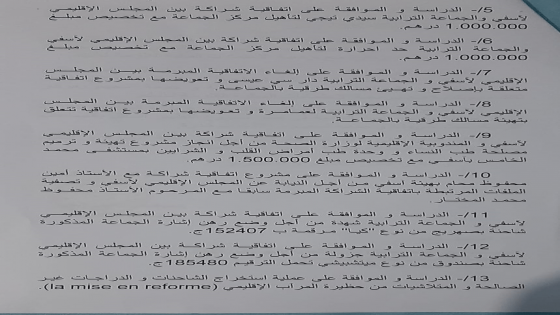 5/- الدراسة و الموافقة على اتفاقية شراكة بين المجلس الإقليمي
لأسفي والجماعة الترابية سيدي تيجي لتأهيل مركز الجماعة مع تخصيص مبلغ
1.000.000 درهم.
6/- الدراسة و الموافقة على اتفاقية شراكة بين المجلس الإقليمي لأسفي
والجماعة الترابية حد احرارة لتأهيل مركز الجماعة مع تخصيص مبلغ
1.000.000 درهم.
7/- الدراسة و الموافقة على إلغاء الاتفاقية المبرمة بين المجلس
الإقليمي لأسفي و الجماعة الترابية دار سي عيسى و تعويضها بمشروع اتفاقية
متعلقة بإصلاح و تهيئ مسالك طرقية بالجماعة.
8/- الدراسة و الموافقة على إلغاء الاتفاقية المبرمة بين المجلس
الإقليمي لأسفي و الجماعة الترابية لعمامرة و تعويضها بمشروع اتفاقية تتعلق
بتهيئة مسالك طرقية بالجماعة.
9/- الدراسة و الموافقة على اتفاقية شراكة بين المجلس الإقليمي
لأسفي و المندوبية الإقليمية لوزارة الصحة من أجل انجاز مشروع تهيئة و ترميم
مصلحة طب النساء و وحدة طب أمراض القلب و الشرايين بمستشفى محمد
الخامس بأسفي مع تخصيص مبلغ 1.500.000 درهم.
10/- الدراسة و الموافقة على مشروع اتفاقية شراكة مع الأستاذ أمين
محفوظ محام بهيئة أسفي من أجل النيابة عن المجلس الإقليمي لأسفي و تصفية
الملفات المرتبطة باتفاقية الشراكة المبرمة سابقا مع المرحوم الأستاذ محفوظ
محمد المختار.
11/- الدراسة و الموافقة على اتفاقية شراكة بين المجلس الإقليمي
لأسفي و الجماعة الترابية شهدة من أجل وضع رهن إشارة الجماعة المذكورة
شاحنة بصهريج من نوع "كيا" مرقمة ب 152407ج.
12/- الدراسة و الموافقة على اتفاقية شراكة بين المجلس الإقليمي
لأسفي و الجماعة الترابية جزولة من أجل وضع رهن إشارة الجماعة المذكورة
شاحنة بصندوق من نوع ميتشيبيشي تحمل الترقيم 185480ج.
13/- الدراسة و الموافقة على عملية استخراج الشاحنات و الدراجات غير
الصالحة و المتلاشيات من حظيرة المرآب الإقليمي (la mise en reforme).